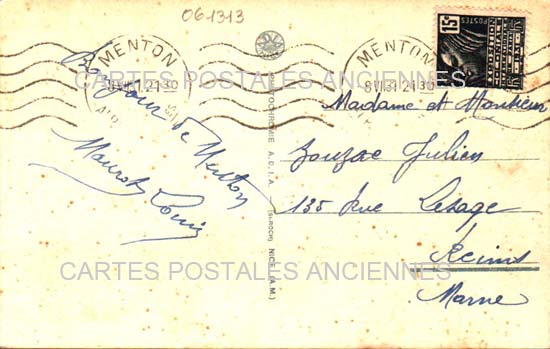 061313
MENTON
8 VII.31 21 30
MENTON
8 VII.31 21 30
POSTES
15c
CARTES POSTALES ANCIENNES
Bonjour de Menton
Louis
PHOTOCHROMIE A.D.I.A. (St-ROCH) NICE (A.M.)
Madame et Monsieur
Gouzac Julien
135 Rue Lesage
Reims
Marne
CARTES POSTALES ANCIENNES